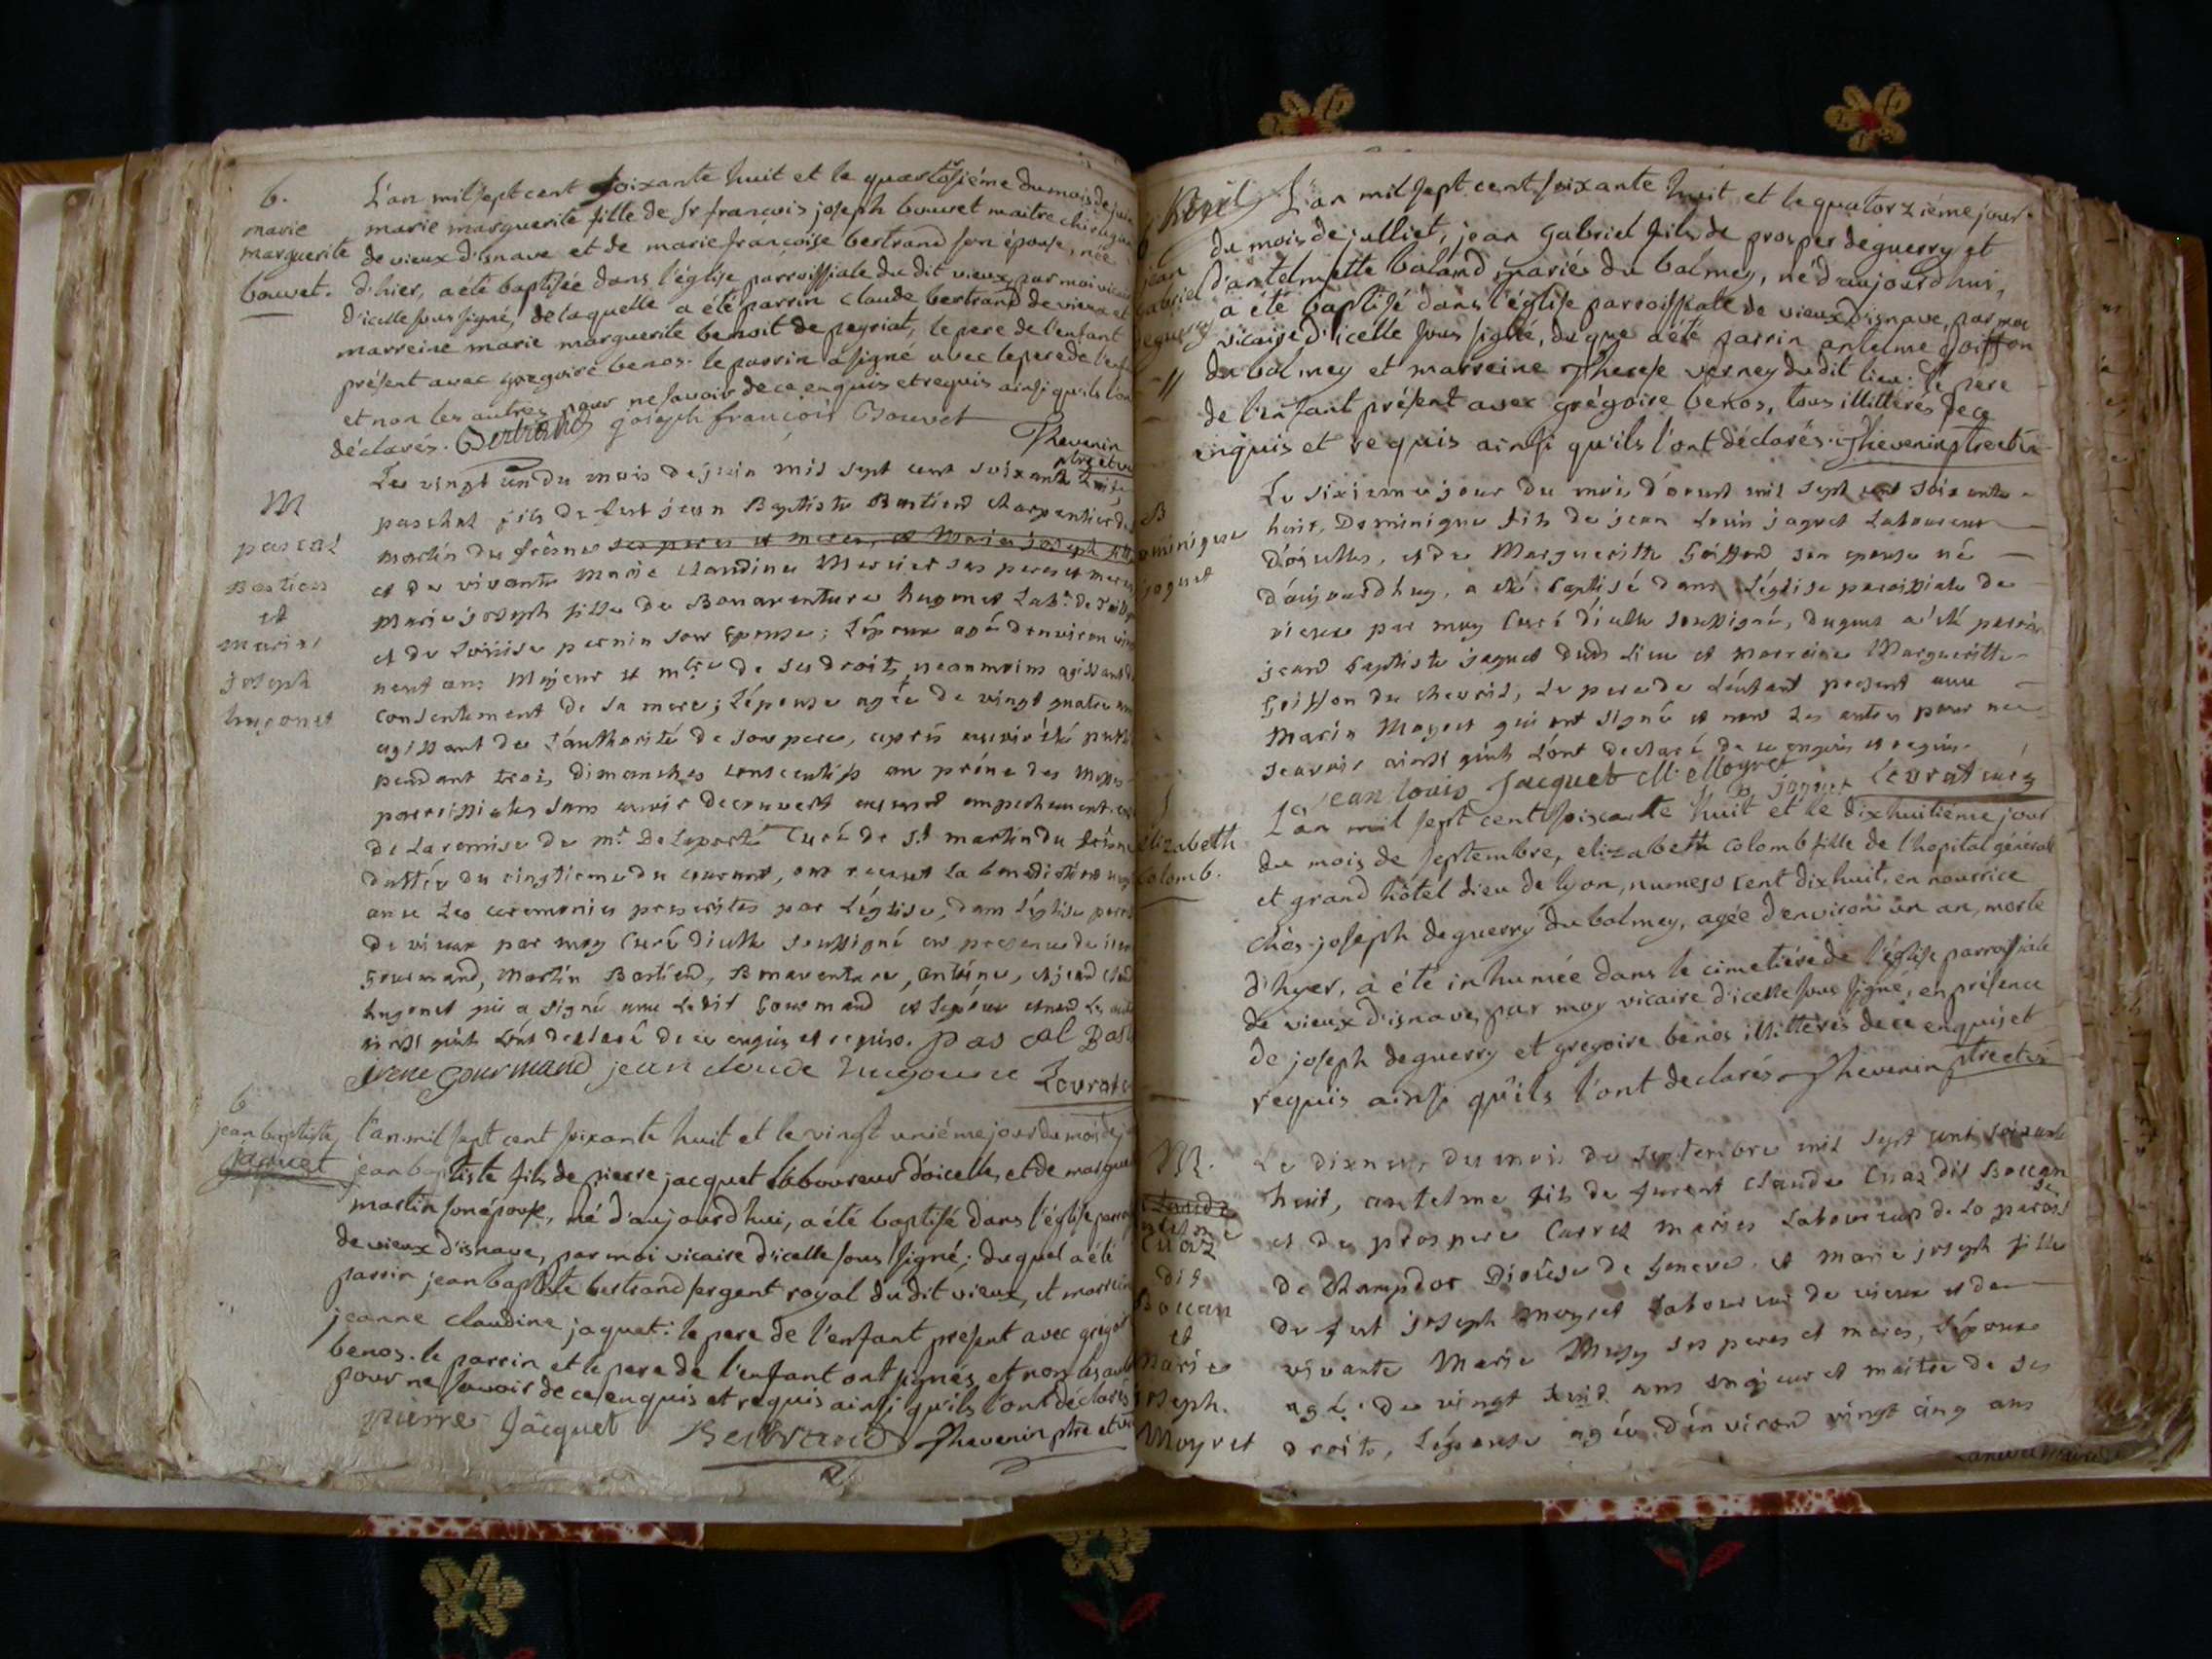 b.
marie
marguerite
bouvet.
L'an mil sept cent soixante huit et le quastosiéme du mois de juin
marie marguerite fille de Sr françois joseph bouvet maitre chirurgien
de vieux d'isnave et de marie françoise bertrand son épouse, née
d'hier, a été baptisée dans l'église parroissiale du dit vieux par moi vicaire
d'icelle sous signé, de laquelle a été parrin claude bertrand de vieux et
marreine marie marguerite benoit de peyriat, le pere de l'enfant
présent avec gregoire benos. le parrin a signé avec le pere de l'enfant
et non les autres pour ne savoir de ce enquis et requis ainsi qu'ils l'ont
déclarés. Bertrand joseph françois Bouvet
Thevenin
ptre et vic
M
pascal
Bastien
et
marie
joseph
hugonet
Les vingt un du mois de juin mil sept cent soixante huit
paschal fils de fut jean Baptiste Bastiend charpentier de
martin du frêsne ses peres et meres, et Marie joseph fille
et de vivante Marie claudine Mercier ses peres et meres
Marie joseph fille de Bonaventure hugonet Lab.r de
et de Loüise pernin son Epouse; L'époux agé d'environ vingt
neuf ans Majeur et m.tre de ses droits neanmoins agissant du
consentement de sa mere; L'épouse agée de vingt quatre ans
agissant de L'authorité de son pere, après avoir été publiés
pendant trois dimanches consecutifs au prône des Messes
parroissiales sans avoir decouvert aucund empechement
de La remise de m.r Delaporte Curé de St martin du frêsne
dattée du vingtieme du courant, ont receut La benediction
avec Les ceremonies prescrites par L'église, dans L'église parroissiale
de vieux par moy Curé d'icelle soussigné en presence de
Gourmand, Martin Bastiend, Bonaventure, antoine, et jean claude
hugonet qui a signé avec Ledit Gourmand et L'époux et nond Les autres
ainssi quils L'ont declaré de ce enquis et requis. pascal Bast
Gourmand jean cloude hugonet Levrat
b
jean baptiste
jaquet
l'an mil sept cent soixante huit et le vingt uniéme jour du mois de
jean baptiste fils de pierre jacquet laboureur d'oicelle, et de marguerite
martin son épouse, né d'aujourdhui, a été baptisé dans l'église parroissiale
de vieux d'isnave, par moi vicaire d'icelle sous signé; duquel a été
parrin jean baptiste bertrand sergent royal du dit vieux, et marreine
jeanne claudine jaquet: le pere de l'enfant présent avec grégoire
benos. le parrin et le pere de l'enfant ont signés, et non les autres
pour ne savoir de ce enquis et requis ainsi qu'ils l'ont déclarés
pierre Jacquet Bertrand Thevenin ptre et vic
b
jean
gabriel
deguerry
L'an mil sept cent soixante huit et le quatorziéme jour
du mois de julliet, jean Gabriel fils de prosper deguerry et
d'antelmette baland mariés du balmey, né d'aujourdhui,
a été baptisé dans l'église parroissiale de vieux d'isnave, par moi
vicaire d'icelle sous signé, du que a été parrin antelme Goiffon
du balmey et marreine Therese verney du dit lieu: le pere
de l'enfant présent avec grégoire benos, tous illitterés de ce
enquis et requis ainsi qu'ils l'ont déclarés. Thevenin ptre et vic
B
Dominique
jaquet
Le sixieme jour du mois d'aoust mil sept cent soixante
huit, Dominique fils de jean Louis jaquet Laboureur
d'oiselles, et de Margueritte Goiffond son epouse né
d'aujourdhuy, a été baptisé dans L'église paroissiale de
vieux par moy Curé d'icelle soussigné, duquel a été parrin
jeand baptiste jaquet dudt Lieu et marreine Margueritte
Goiffon du chevril, Le pere de L'enfant present avec
Marin Moyret qui ont signé et nond Les autres pour ne
scavoir ainssi quils L'ont declaré de ce enquis et requis.
jean louis Jacquet M. Moyret jb jaquet Levrat curé
S
Elizabeth
colomb.
L'an mil sept cent soixante huit et le dixhuitiéme jour
du mois de septembre, elizabeth colomb fille de l'hopital générale
et grand hôtel dieu de lyon, numero cent dixhuit, en nourrice
chés joseph deguerry du balmey, agée d'environ un an, morte
d'hyer, a été inhumée dans le cimetiére de l'église parroissiale
de vieux d'isnave, par moy vicaire d'icelle sous signé, en présence
de joseph deguerry et gregoire benos illitterés de ce enquis et
requis ainsi qu'ils l'ont declarés. Thevenin ptre et vic
M.
antelme
Cuaz
dit
Boccan
et
Marie
joseph.
Moyret
Le dixneuf du mois de septembre mil sept cent soixante
huit, antelme fils de furent claude Cuaz dit Boccan
et de prospere Carret maries Laboureurs de La paroisse
de champdor Diocèse de Geneve. et marie joseph fille
de fut joseph moyret Laboureur de vieux et de
vivante Marie Mugy ses peres et meres, L'époux
agé de vingt huit ans majeur et maitre de ses
droits, L'épouse agée d'environd vingt cinq ans